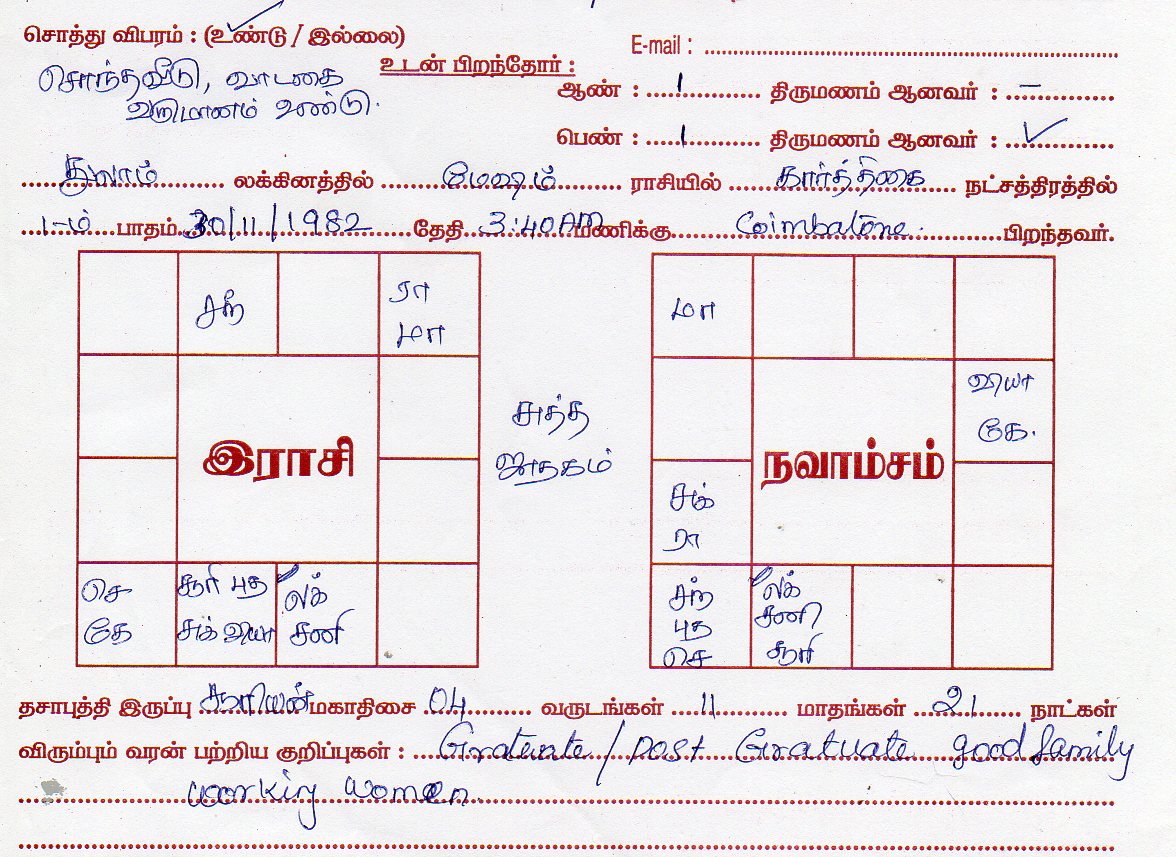 சொத்து விபரம் : (உண்டு / இல்லை)
E-mail : ....................
சொந்தவீடு, வாடகை
வருமானம் உண்டு.
உடன் பிறந்தோர் :
ஆண் : 1 திருமணம் ஆனவர் : –
பெண் : 1 திருமணம் ஆனவர் : ✓
துலாம் லக்கினத்தில் மேஷம் ராசியில் கார்த்திகை நட்சத்திரத்தில்
1-ம் பாதம் 30/11/1982 தேதி 3:40 AM மணிக்கு Coimbatore. பிறந்தவர்.
சந்
ரா
மா
இராசி
செ
கே
சூரி புத
சுக் வியா
லக்
சனி
சுத்த
ஜாதகம்
மா
வியா
கே.
நவாம்சம்
சுக்
ரா
சந்
புத
செ
லக்
சனி
சூரி
தசாபுத்தி இருப்பு சூரியன் மகாதிசை 04 வருடங்கள் 11 மாதங்கள் 21 நாட்கள்
விரும்பும் வரன் பற்றிய குறிப்புகள் : Grateuate / post Gratuate good family
working women.